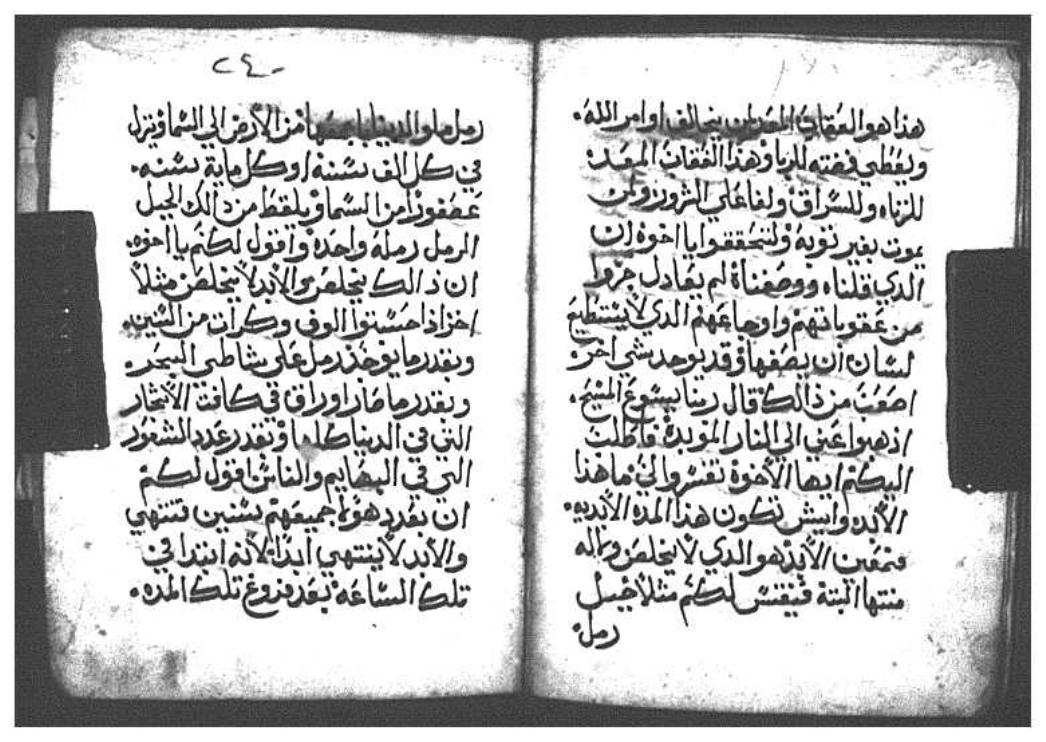 هذا هو العقاب المعد لمن يخالف اوامر الله.
ويعطي فضته للربا وهذا العقاب المعد.
للزناه وللسراق ولفاعلي الشرور ولمن
يموت بغير توبه ولتحققوا يا اخوة ان
الذي قلناه ووصفناه لم يعادل جزوا
من عقوباتهم واوجاعهم الذي لا يستطيع
لسان ان يصفها وقد يوجد شي اخر
اصعب من ذالك قال ربنا يسوع المسيح.
اذهبوا عني الي النار الموبدة فاطلت
اليكم ايها الاخوة تفسروا لي ما هذا
الابد وايش تكون هذا المده الابديه.
فمعني الابد هو الذي لا يخلص وماله
منتها البتة فنفسر لكم مثلا جبل
رمل.
٢٤٠
رمل ملو الدنيا باجمعها من الارض الي السما وتزل
في كل الف سنه او كل ماية سنه.
عصفور من السما ويلقط من ذالك الجبل
الرمل رملة واحده واقول لكم يا اخوه.
ان ذالك يخلص والابد لا يخلص مثلا
اخر اذا حسبتوا الوف وكرات من السنين.
وبقدر ما يوخذ رمل علي شاطي البحر.
وبقدر ما صار اوراق في كافت الاشجار
التي في الدنيا كلها وبقدر عدد الشعور
التي في البهايم والناس اقول لكم
ان بعدد هولا جميعهم سنين تنتهي
والابد لا ينتهي ابدا لانه ابتدا في
تلك الساعه بعد فروغ تلك المده.